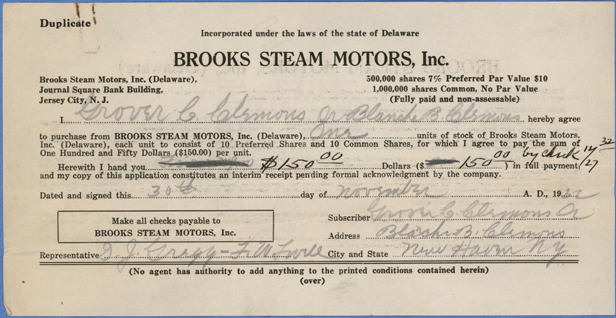 Duplicate
Incorporated under the laws of the state of Delaware
BROOKS STEAM MOTORS, Inc.
Brooks Steam Motors, Inc. (Delaware),
Journal Square Bank Building,
Jersey City, N. J.
500,000 shares 7% Preferred Par Value $10
1,000,000 shares Common, No Par Value
(Fully paid and non-assessable)
I, Grover C Clemons Or Blanche B. Clemons hereby agree
to purchase from BROOKS STEAM MOTORS, Inc. (Delaware), One units of stock of Brooks Steam Motors,
Inc. (Delaware), each unit to consist of 10 Preferred Shares and 10 Common Shares, for which I agree to pay the sum of
One Hundred and Fifty Dollars ($150.00) per unit.
Herewith I hand you $150.00 Dollars ($ 150.00) in full payment, by check
and my copy of this application constitutes an interim receipt pending formal acknowledgment by the company.
Dated and signed this 30th day of November A. D., 192
Make all checks payable to
BROOKS STEAM MOTORS, Inc.
Subscriber Grover C Clemons Or
Address Blanche B. Clemons
Representative City and State New Haven NY
(No agent has authority to add anything to the printed conditions contained herein)
(over)